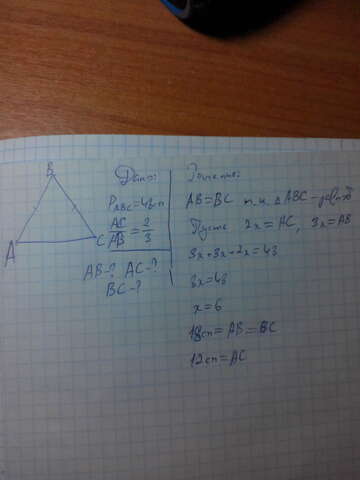 B
A
C
Дано:
P ABC = 48 см
AC/AB = 2/3
AB-? AC-?
BC-?
Решение:
AB=BC т.к. △ABC - равноб
Пусть 2x=AC, 3x=AB
3x+3x+2x=48
8x=48
x=6
18см=AB=BC
12см=AC